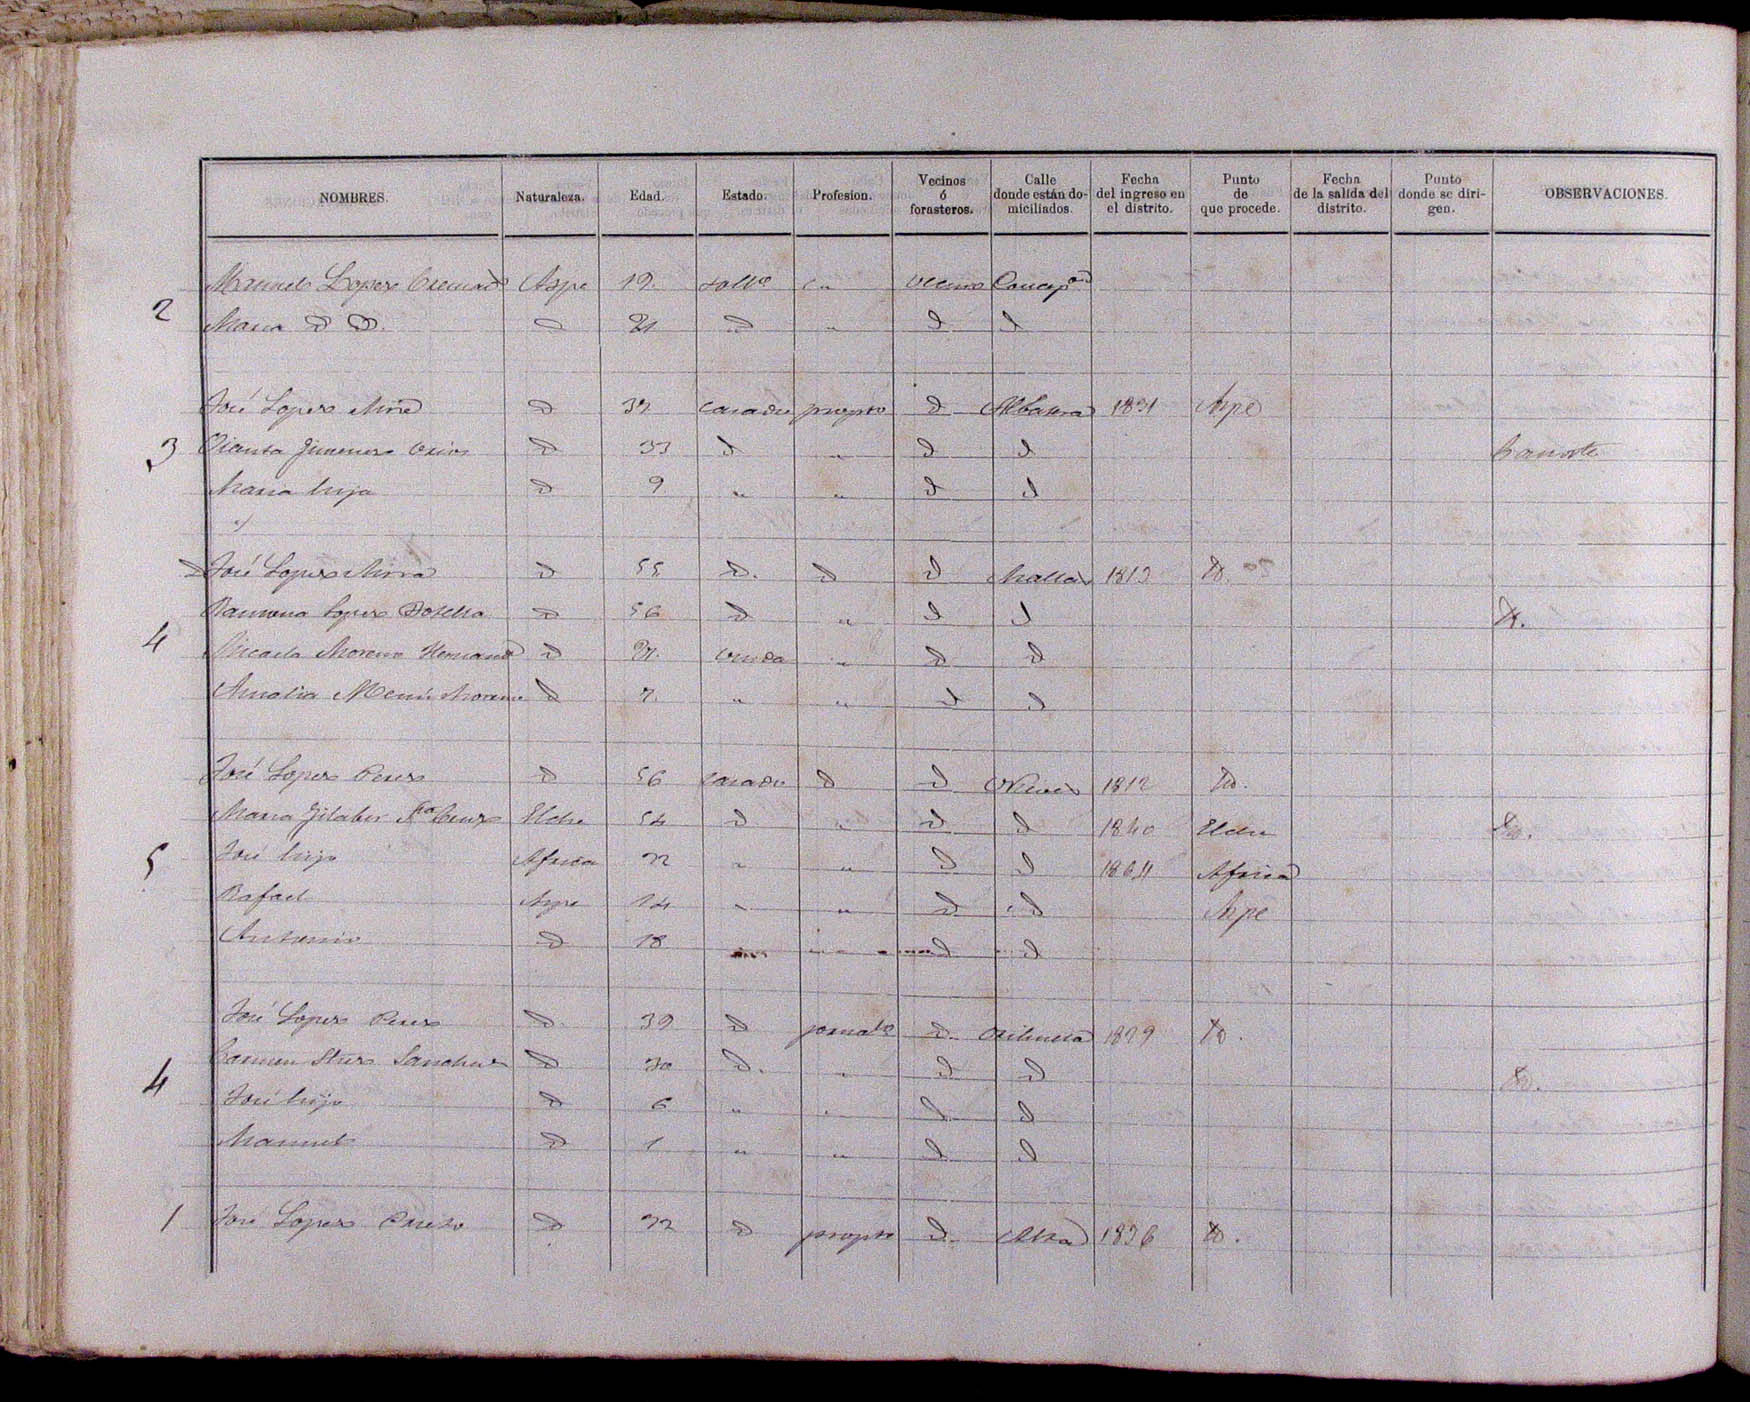 NOMBRES. Naturaleza. Edad. Estado. Profesion. Vecinos ó forasteros. Calle donde están domiciliados. Fecha del ingreso en el distrito. Punto de que procede. Fecha de la salida del distrito. Punto donde se dirigen. OBSERVACIONES.
Manuel Lopez Aspe 19. solto vecino Concepon
2
Maria D D. D 21 D " D D
José Lopez Mira D 37 casado propto D Albatera 1831 Aspe
3 Jimenez D 33 D " D D
Maria hija D 9 " " D D
José Lopez Mira D 55 D. D D 1813 D.
Ramona Lopez Botella D 56 D " D D D.
4 Micaela Moreno Hernand D 27. viuda " D D
Amalia Moreno D 7. " " D D
José Lopez Perez D 56 casado D D Nieves 1812 D.
Maria Jilaber Elche 54 D " D D 1840 Elche D.
5 José hijo Africa 22 " " D D 1864 Africa
Rafael Aspe 14 " " D D Aspe
Antonio D 18 D D
José Lopez Perez D 39 D jornalo D Orihuela 1829 D.
Carmen Sanchez D 30 D. " D D D.
4
José hijo D 6 " " D D
Manuel D 1 " " D D
1 José Lopez D 32 D propto D 1836 D.